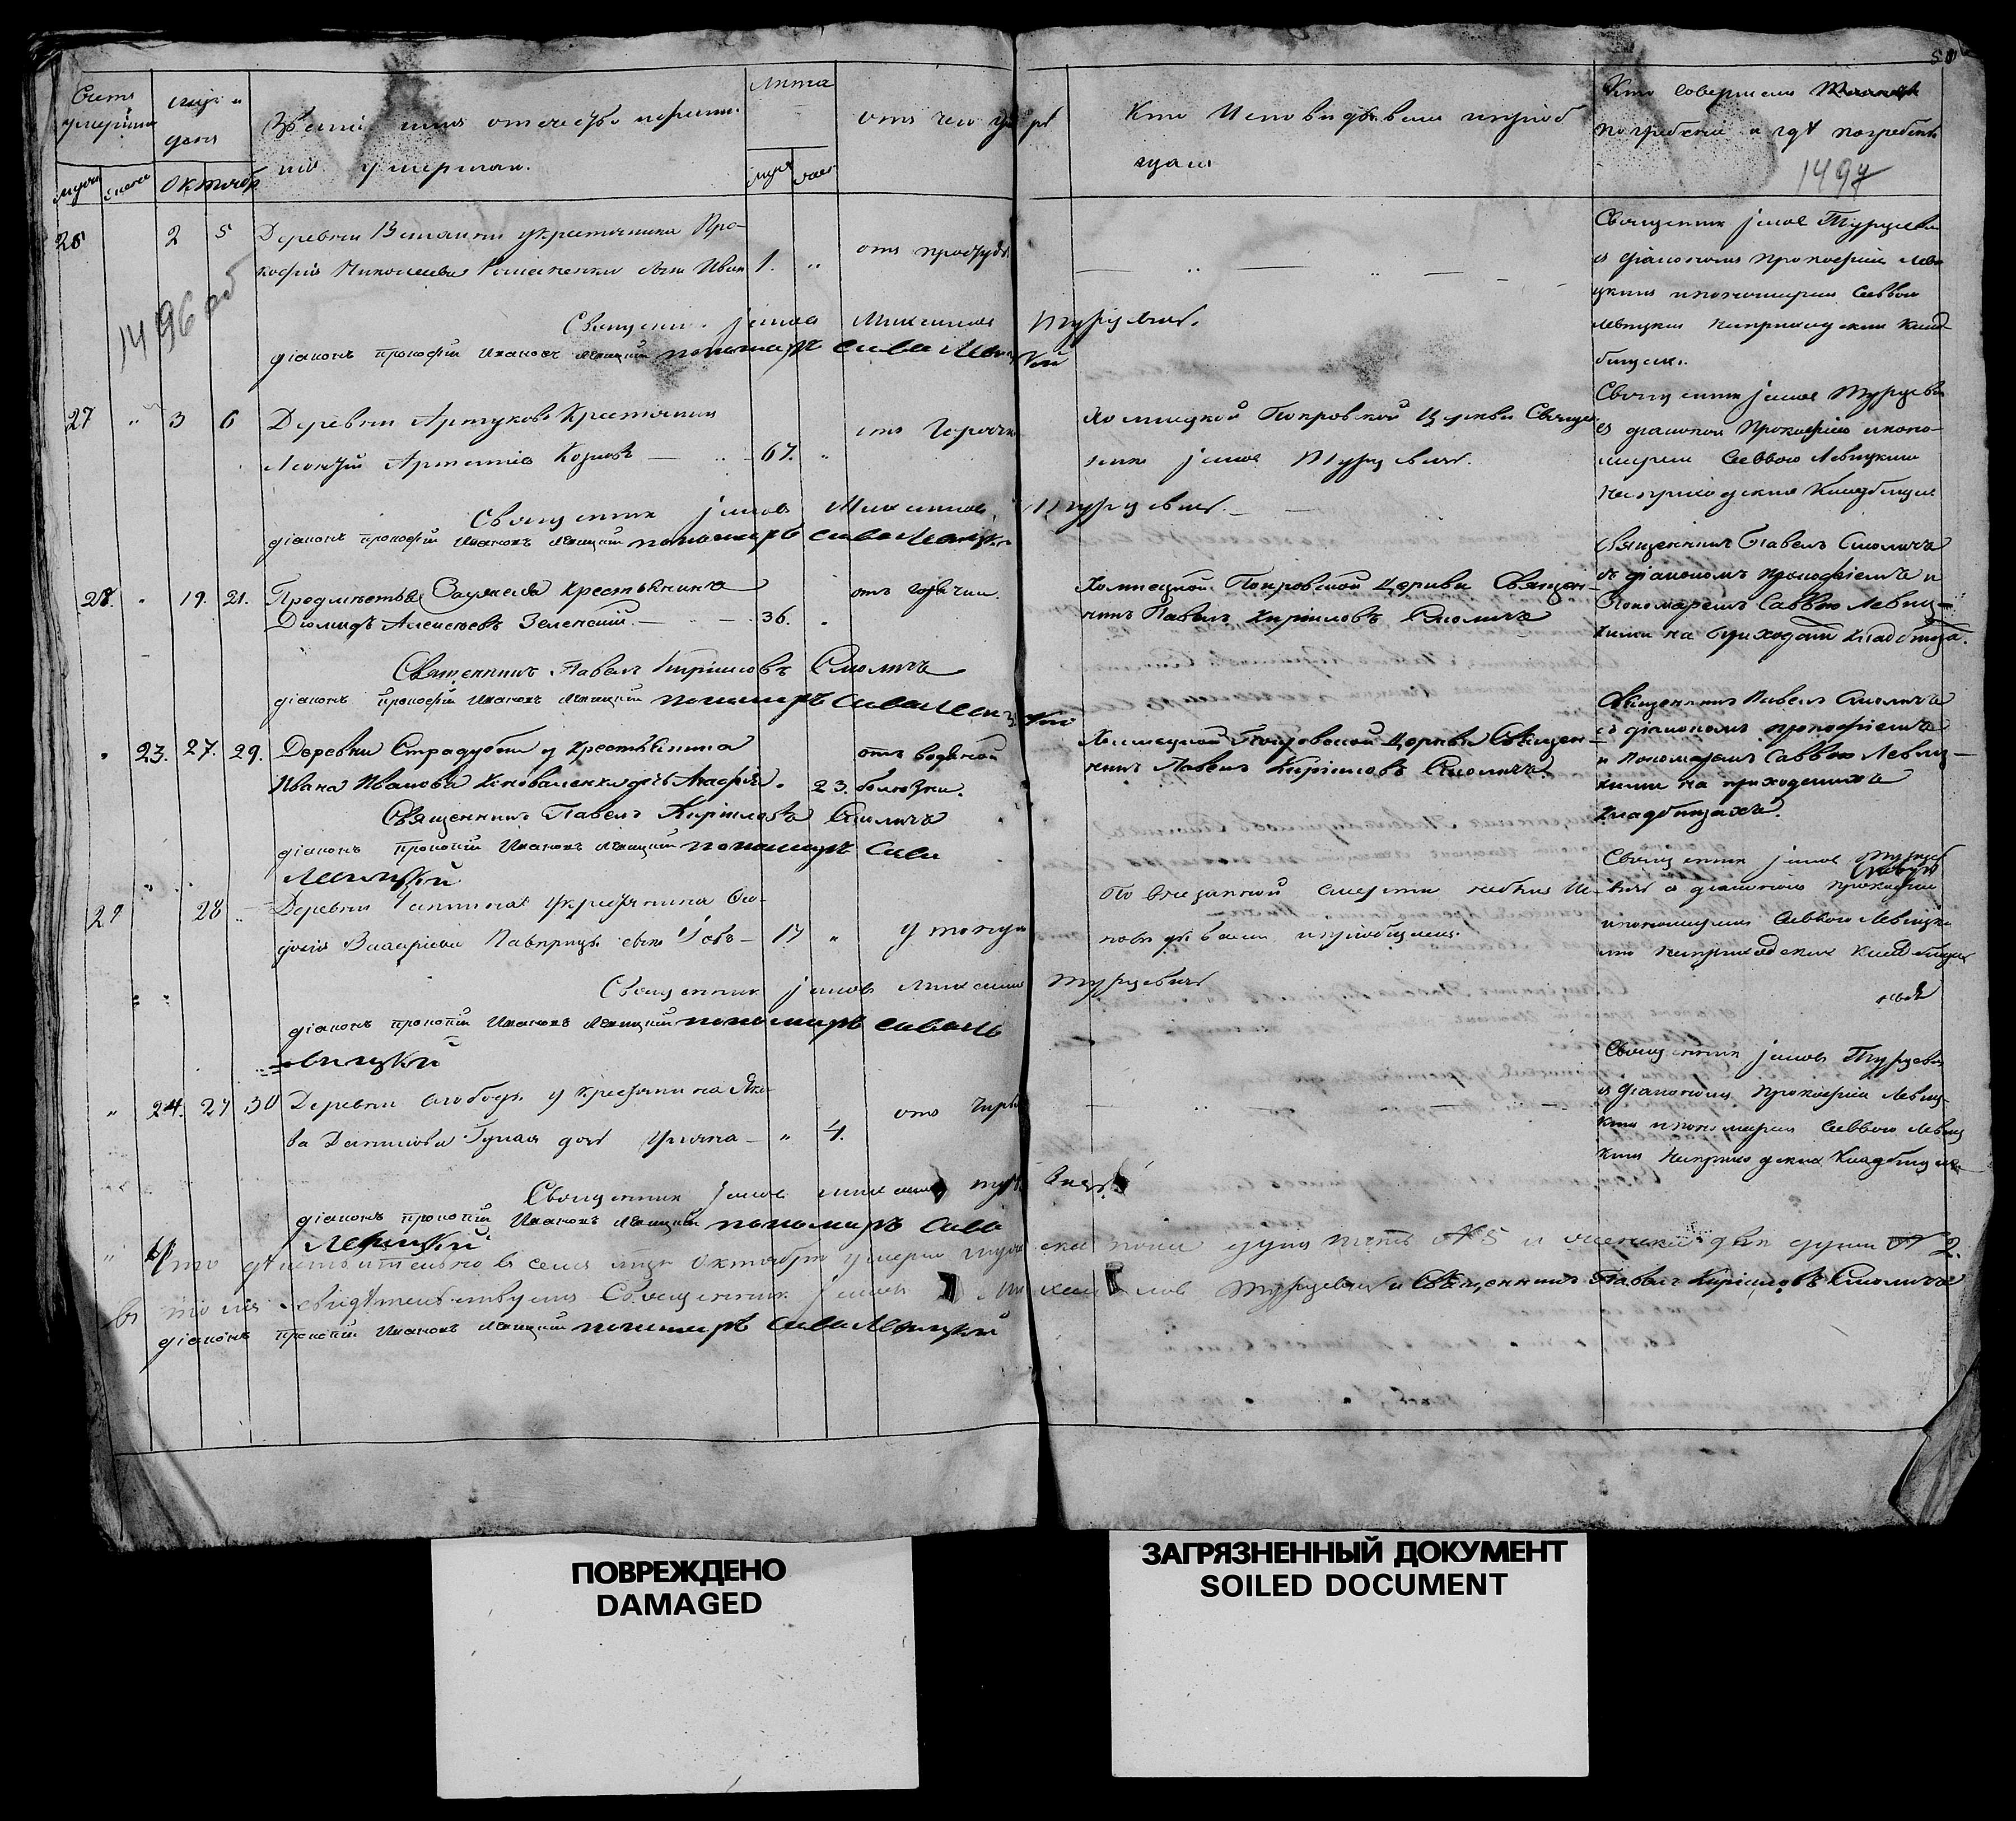 Счетъ
умершихъ
муж
женска
мѣс и
день
Октябр
Званіе имя отечество
кто умерши.
Лѣта
муж
жен
отъ чего умеръ
Кто Исповѣдывалъ и пріоб
щалъ
Кто совершалъ
погребеніе и гдѣ погребены
50
1497
1496 об
2 5 Деревни крестьянина Про-
кофія Николаева сынъ Иван 1. "
отъ простуды
Священник Турцеви
съ діакономъ Прокофіем Леви
цкимъ и пономаремъ Саввою
Левицким на приходском клад
бищѣ.
Священник Максимов Турцевич.
діаконъ прокофій Ивановъ Левицкій пономаръ Сава Левицкій
27 " 3 6 Деревни Артуковъ Крестьянин
Козловъ 67. "
отъ Горячки
Холмецкой Покровской Церкви Свяще
нникъ Турцевич.
Священник Турцеви
съ діаконом Прокофіемъ и поно-
маремъ Саввою Левицким
на приходским Кладбище
Священник Максимов Турцевич.
діаконъ прокофій Ивановъ Левицкій пономаръ Сава Левицкій
28. " 19. 21. Предмѣстья крестьянинъ
Алексѣевъ Зеленскій. 36. "
отъ горячки.
Холмецкой Покровской Церкви Священ-
никъ Павелъ Кириловъ Смоличъ
Священникъ Павелъ Смоличъ
съ діакономъ Прокофіемъ и
Пономаремъ Саввою Левиц-
кими на приходском кладбищѣ.
Священникъ Павелъ Кириловъ Смоличъ
діаконъ прокофій Ивановъ Левицкій пономаръ Сава Левицкій
" 23. 27. 29. Деревни Страдубки у Крестьянина
Ивана Иванова Коноваленки дочь Агафія. 23.
отъ водяной
болѣзни.
Холмецкой Покровской Церкви Священ-
никъ Павелъ Кириловъ Смоличъ.
Священникъ Павелъ Смоличъ
съ діакономъ прокофіемъ
и Пономаремъ Саввою Левиц-
кими на приходскихъ
Кладбищахъ.
Священникъ Павелъ Кириловъ Смоличъ
діаконъ Прокопій Ивановъ Левицкій пономаръ Сава
Левицкій
29 28 Деревни у крестьянина
сынъ 17 "
утонул
По внезапной смерти небылъ Ис-
повѣдываемъ и пріобщаемъ.
Священник Турце
вич съ діакономъ Прокофіем
и пономаремъ Саввою Левицки
ми на приходских кладбищах
Священник Максимов Турцевич
діаконъ прокопій Ивановъ Левицкій пономаръ Сава Ле
вицкій
" 24. 27 30 Деревни Слободы у Крестьянина Яко-
ва Данилова дочь Ульяна " 4.
Священник Турцеви
съ діакономъ Прокофіем Левиц
ким и пономарем Саввою Левиц
ким на приходских Кладбищах
Священник Максимов Турцевич
діаконъ прокопій Ивановъ Левицкій пономаръ Сава
Левицкій
Что дѣйствительно въ семъ мѣсяцѣ Октябрѣ умерло мужеска пола душъ пять № 5 и женска двѣ души № 2.
въ томъ свидѣтельствуемъ Священник Максимов Турцевич и Священникъ Павелъ Кириловъ Смоличъ
діаконъ прокопій Ивановъ Левицкій пономаръ Сава Левицкій
ПОВРЕЖДЕНО
DAMAGED
ЗАГРЯЗНЕННЫЙ ДОКУМЕНТ
SOILED DOCUMENT